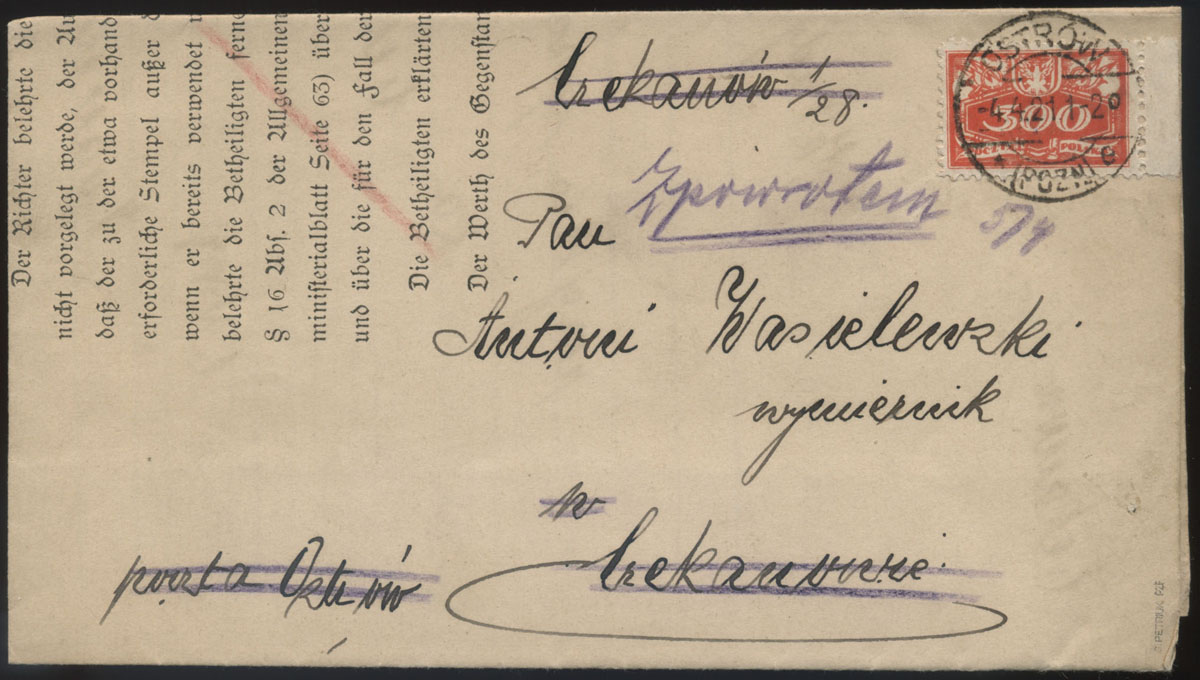 Der Richter belehrte die
nicht vorgelegt werde, der Au
daß der zu der etwa vorhand
erforderliche Stempel außer d
wenn er bereits verwendet
belehrte die Betheiligten ferne
§ 16 Abs. 2 der Allgemeinen
ministerialblatt Seite 63) über
und über die für den Fall der
Die Betheiligten erklärten
Der Werth des Gegenstan
Czekanów 1/28.
OSTRÓW
-4.4.21.1-2⁰
(POZN) c
300
POLS
Zpowrotem
5/4
Pan
Antoni Wasielewski
wymiernik
w
Czekanowie.
poczta Ostrów
PETRIUK PZF